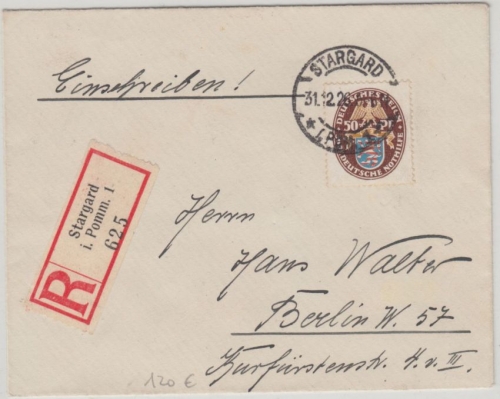 Einschreiben!
STARGARD
31.12.26
DEUTSCHES REICH
50 Pf
DEUTSCHE NOTHILFE
Stargard
i. Pomm. 1
R 625
Herrn
Hans Walter
Berlin W. 57
Kurfürstenstr.
120 €